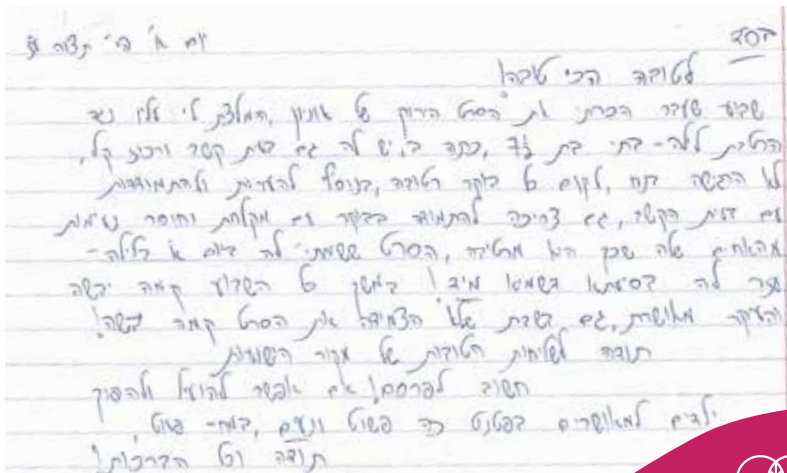 בסד יום א' פ' תצוה
לטובה הכי טובה!
שבוע שעבר הכרתי את הסרט הירוק של אוניון, המלצת לי עליו נגד
הרטבת לילה - בתי בת 7½, כתה ב, יש לה גם בעית קשב וריכוז קל,
לא הרגישה בנח, לקום כל בוקר רטובה, בנוסף להערות ולהתמודדות
עם בעית הקשב, גם צריכה להתמודד בבוקר עם מקלחת וחוסר נעימות
מהאחים שלה שכך היא מרטיבה, הסרט ששמתי לה ביום א בלילה -
עזר לה בסיעתא דשמיא מיד! במשך כל השבוע קמה יבשה
והעיקר מאושרת, גם בשבת שלא הצמידה את הסרט קמה יבשה!
תודה לשליחות הטובות של מקור הישועות
חשוב לפרסם! אם אפשר להועיל ולהפוך
ילדים למאושרים בפטנט כה פשוט ונעים,
תודה וכל הברכות!